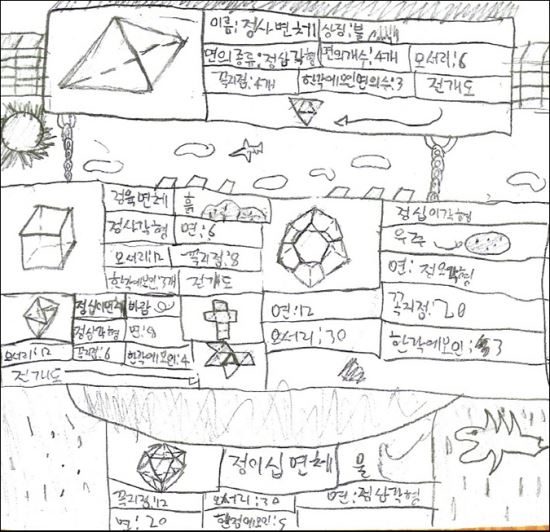 이름:정사면체 상징:불
면의종류:정삼각형 면의개수:4개 모서리:6
꼭지점:4개 한각에모인면의수:3 전개도
정육면체 흙
정사각형 면:6
모서리:12 꼭지점:8
한각에모인:3개 전개도
정십이각형
우주
면:정오각형
꼭지점:20
한각에모인:3
면:12
모서리:30
바람
정삼각형 면:8
모서리:12 꼭지점:6 한각에모인:4
전개도
정이십면체 물
꼭지점:12 모서리:30 면:정삼각형
면:20